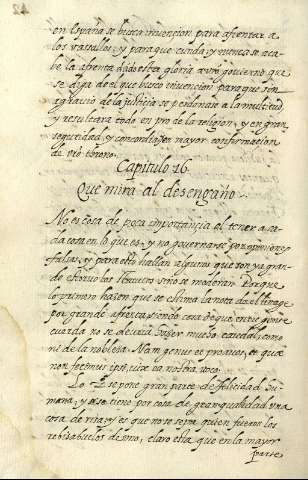 en España se busca invencion para afrentar a
los vasallos, y para que cunda, y nunca se aca-
be la afrenta dado esta gloria a un gouierno que
se diga del que busco invencion para que sin
agrauio de la justicia se perdonase a la multitud,
y resultara todo en pro de la religion, y en gran
seguridad, y concordia, y mayor confirmacion
de
Capitulo 16.
Que mira al desengaño.
No es cosa de poca importancia el tener a ca-
da cosa en lo que es, y no gouernarse por opiniones
falsas, y para esto hallan algunos que son ya gran-
de estoruo los si no se moderan. Porque
lo primero hazen que se estima la nota del linage
por grande afrenta, siendo cosa de que entre gente
cuerda no se deuria hazer mucho caudal, como
ni de la nobleza. Nam genus et proauos, et quæ
non fecimus ipsi, uix ea nostra uoco.
Lo 2. se pone gran parte de felicidad hu-
mana, y se tiene por cosa de gran qualidad una
cosa de risa, y es que no se sepa quien fueron los
rebisabuelos de uno, claro esta que en la mayor
parte